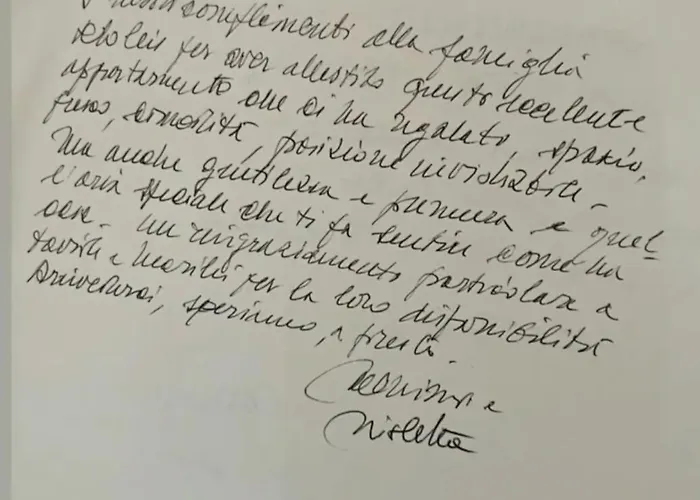 complimenti alla famiglia
per aver allestito questo eccellente
appartamento che ci ha regalato, spazio,
comodità, posizione invidiabile -
Ma anche gentilezza e premura e quel-
l'aria speciale che ti fa sentire come na
casa - Un ringraziamento particolare a
e per la loro disponibilità
Arrivederci, speriamo, a presto
e
Nicoletta